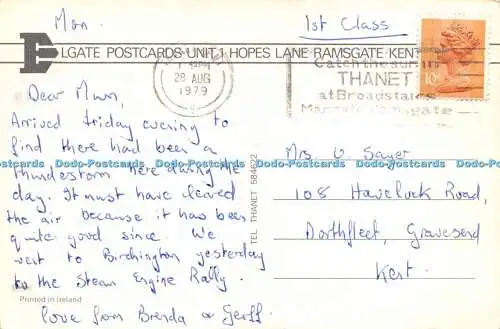 Mon.
1st Class
ELGATE POSTCARDS UNIT 1 HOPES LANE RAMSGATE KENT
28 AUG
1979
Catch the sun in
THANET
at Broadstairs
Margate Ramsgate
10P
Dear Mum,
Arrived friday evening to
find there had been a
thunderstorm here during the
day. It must have cleared
the air because it has been
quite good since. We
went to Birchington yesterday
to the Steam Engine Rally.
love from Brenda & Geoff.
Printed in Ireland
TEL THANET 584622
Mrs. V. Sayer
108 Havelock Road,
Northfleet, Gravesend
Kent.
Dodo-Postcards Dodo-Postcards Dodo-Postcards Dodo-Postcards Dodo-Postcards